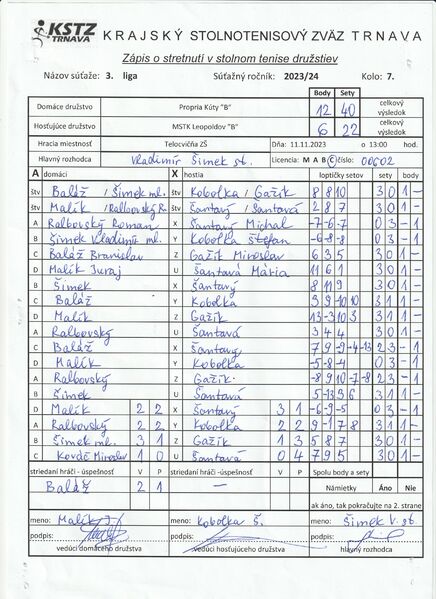 KSTZ TRNAVA KRAJSKÝ STOLNOTENISOVÝ ZVÄZ TRNAVA
Zápis o stretnutí v stolnom tenise družstiev
Názov súťaže: 3. liga Súťažný ročník: 2023/24 Kolo: 7.
Body Sety
Domáce družstvo Propria Kúty "B" 12 40 celkový výsledok
Hosťujúce družstvo MSTK Leopoldov "B" 6 22 celkový výsledok
Hracia miestnosť Telocvičňa ZŠ Dňa: 11.11.2023 o 13:00 hod.
Hlavný rozhodca Vladimír Šimek st. Licencia: M A B C číslo: 00602
A domáci X hostia loptičky setov sety body
štv Baláž / Šimek ml. štv Kobolka / Gažík 8 8 10 3 0 1 -
štv Malík / Ralbovský R. štv Šantavý / Šantavá 2 8 7 3 0 1 -
A Ralbovský Roman X Šantavý Michal -7 -6 -7 0 3 - 1
B Šimek Vladimír ml. Y Kobolka Štefan -6 -8 -8 0 3 - 1
C Baláž Branislav Z Gažík Miroslav 6 3 5 3 0 1 -
D Malík Juraj U Šantavá Mária 11 6 1 3 0 1 -
B Šimek X Šantavý 8 11 9 3 0 1 -
C Baláž Y Kobolka 3 1 1 -
D Malík Z Gažík 3 1 1 -
A Ralbovský U Šantavá 3 4 4 3 0 1 -
C Baláž X Šantavý 7 9 -9 -4 -13 2 3 - 1
D Malík Y Kobolka -5 -8 -4 0 3 - 1
A Ralbovský Z Gažík -8 9 10 -7 -8 2 3 - 1
B Šimek U Šantavá 3 1 1 -
D Malík 2 2 X Šantavý 3 1 -6 -9 -5 0 3 - 1
A Ralbovský 2 2 Y Kobolka 2 2 9 -1 7 8 3 1 1 -
B Šimek ml. 3 1 Z Gažík 1 3 5 8 7 3 0 1 -
C Miroslav 1 0 U Šantavá 0 4 7 9 5 3 0 1 -
striedaní hráči - úspešnosť V P striedaní hráči - úspešnosť V P Spolu body a sety
Baláž 2 1 — Námietky Áno Nie
ak áno, tak pokračujte na 2. strane
meno: Malík J. meno: Kobolka Š. meno: Šimek V. st.
podpis: podpis: podpis:
vedúci domáceho družstva vedúci hosťujúceho družstva hlavný rozhodca